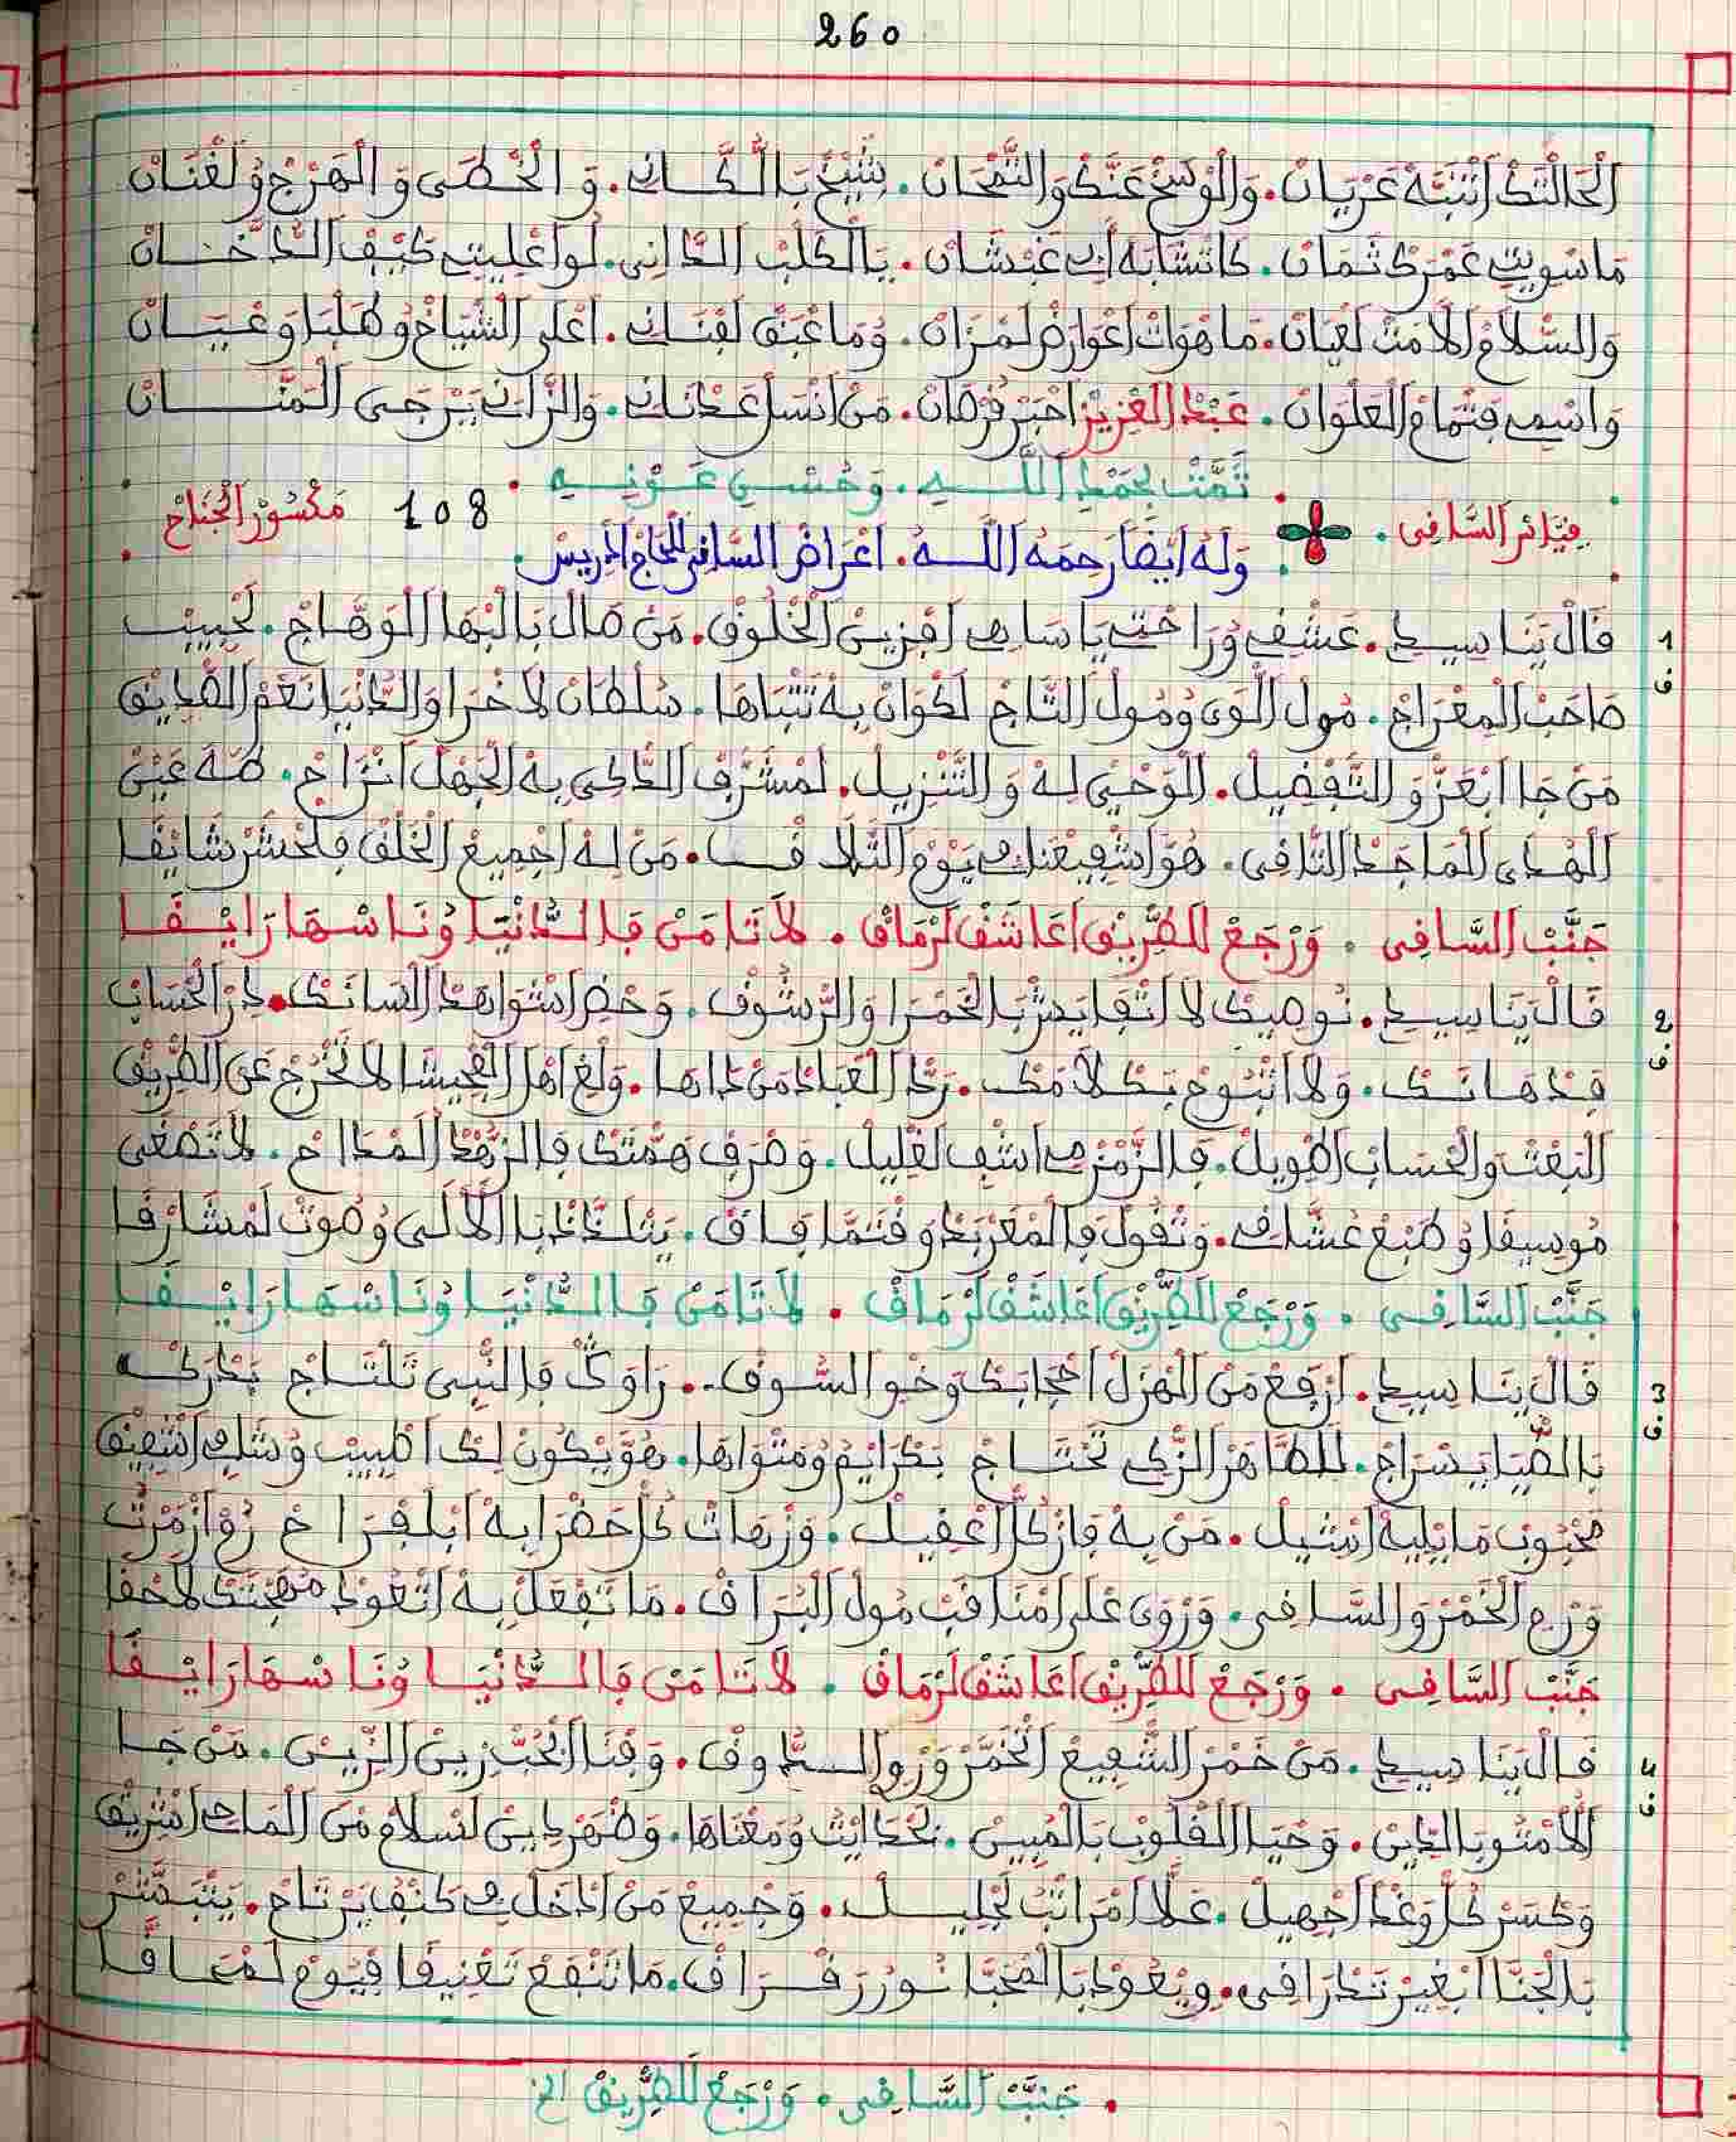 260
الْحَالْتَكْ اَتْنَبَّهْ عَرْيَانْ. وَالْوْسَخْ عَنَّكْ وَالنَّمْحَانْ. شْبَيَّخْ بَالْكَّانِ. وَ الْخْطَى وَ الْهَرْجْ وُلَغْنَانْ
مَاسْوِيتِ عَمْرَكْ ثَمَانْ. كَاتْشَابَهْ لَغْبَشَانْ. بَالْكَلْبْ الدَّانِي. لُوا كَيْفْ الدَّخَانْ
وَالسّْلَامْ الْعْيَانْ. مَا هْوَاتْ اَعْوَارَضْ لَمْزَانْ. وُمَا عْبَقْ لَفْنَانِ. اَعْلَى الشّْيَاخْ وُطَلْبَا وَعْيَانْ
وَاسْمِي فَتْمَامْ الْعَلْوَانْ. عَبْدْ الْعْزِيزْ اَحْبَرْ فُرْصَانْ. مَنْ اَنْسَلْ عَدْنَانِ. وَالرَّانِي يَرْجَى الْمَنَّانْ
تَمَّتْ بِحَمْدِ اللَّهِ. وَحُسْنِ عَوْنِهِ
فِيَّاتَرْ السَّاقِي. وَلَهُ اَيْضًا رَحِمَهُ اللَّهُ. اَعْرَاضْ السَّاقِي لِلْحَاجْ اِدْرِيسْ. 108 مَكْسُورْ الْجْنَاحْ
1 قَالْ يَنَا سِيدِي. عَشْقِي وُرَاحْتِي يَا سَاهِي اَفْزِينْ الْخْلُوقْ. مَنْ صَالْ بَالْبْهَا الْوَهَّاجْ. لَحْبِيبْ
ف صَاحَبْ الْمَعْرَاجْ. مُولْ الْوَى وُمُولْ التَّاجْ لَكْوَانْ بِهْ تَتْبَاهَا. سُلْطَانْ لَاخْرَا وَالدَّنْيَا نَعْمْ الصّْدِيقْ
مَنْ جَا اَبْعَزُّ وَ التَّفْضِيلْ. الْوَحْيْ لِهْ وَ التَّنْزِيلْ. لَمْشَرَّفْ الدَّكِي بِهْ الْجْهَلْ اَنْزَاحْ. طَهَ عَيْنْ
الْهْدَى الْمَاجَدْ التَّاقِي. هُوَ اَشْفِيعْنَا فِي يَوْمْ التّْلَاقْ. مَنْ لِهْ اَجْمِيعْ الْخَلْقْ فَلْحْشَرْ شَايْقَا
جَنَّبْ السَّاقِي. وَرْجَعْ لَلطّْرِيقْ اَعَاشَقْ لَرْمَاقْ. لَا تَامَنْ فَالدَّنْيَا وُنَاسْهَا رَايْقَا
2 قَالْ يَنَا سِيدِي. نُوصِيكْ لَا اَتْقَايَصْ بَالْخَمْرَا وَالرّْشُوفْ. وَحْضِي اَسْوَاهَدْ الْسَانَكْ. دِرْ الْحْسَابْ
ف فَدْهَانَكْ. وَلَا اَتْبُوحْ بَكْلَامَكْ. رَدّْ الْعْبَادْ مَنْ دَاهَا. وَلْغِي اَهْلْ الْفْحِيشَا لَا تَخْرَجْ عَنْ الطّْرِيقْ
الْبَعْثْ وَالْحْسَابْ اَطْوِيلْ. فَالزَّمْزْمِي اَشْفِي لَقْلِيلْ. وَصْرَفْ هَمَّتَكْ فَالزُّهْدْ الْمَدَّاحْ. لَا تَصْغَى
مُوسِيقَا وُطْبَعْ عُشَّاقْ. وَتْقُولْ فَالْمْعَرْبَدْ وَقْتَمَّا فَاقْ. يَتْلَذَّدْ بَا الْالَى وُصُوتْ لَمْشَارْقَا
جَنَّبْ السَّاقِي. وَرْجَعْ لَلطّْرِيقْ اَعَاشَقْ لَرْمَاقْ. لَا تَامَنْ فَالدَّنْيَا وُنَاسْهَا رَايْقَا
3 قَالْ يَنَا سِيدِي. اَرْفَعْ مَنْ الْهْزَلْ اَحْجَابَكْ وَخْوِ السُّوقْ. رَاوَكْ فَالنّْبِي تَلْتَاجْ بَدْرَكْ
ف بَالضّْيَا يَسْرَاجْ. لَلطَّاهَرْ الزّْكِي تَحْتَاجْ بَكْرَايْمُ وُمَثْوَاهَا. هُوَ يْكُونْ لَكْ اَطْبِيبْ وُسَلْطْ اَشْفِيقْ
مَحْبُوبْ مَا يْلِيهْ اَمْثِيلْ. مَنْ بِهْ فَازْ كُلّْ اَعْقِيلْ. وَزْهَاتْ كُلّْ حَضْرَا بِهْ اَبْلَفْرَاحْ رُوْ اَزْمَرْتْ
وَرْعِ الْخْمَرْ وَ السَّاقِي. وَرْوَى عْلَى اَمْنَاقَبْ مُولْ الْبْرَاقْ. مَا تَفْعَلْ بِهْ اَتْعُودْ مَهْجْتَكْ لَاحْقَا
جَنَّبْ السَّاقِي. وَرْجَعْ لَلطّْرِيقْ اَعَاشَقْ لَرْمَاقْ. لَا تَامَنْ فَالدَّنْيَا وُنَاسْهَا رَايْقَا
4 قَالْ يَنَا سِيدِي. مَنْ خَمْرْ الشّْفِيعْ اَتْخَمَّرْ وَرْوِ السَّدُوفْ. وَفْنَا اَبْحُبّْ زِينْ الزِّينْ. مَنْ جَا
ف اَلْاُمّْتُو بَالدِّينْ. وَحْيَا الْقْلُوبْ بَالْمْبِينْ. بَحْدَايْثُ وُمَعْنَاهَا. وَظْهَرْ دِينْ لَسْلَامْ مَنْ الْمَاحِي اَشْرِيقْ
وَكْسَرْ كُلّْ وَغْدْ اَجْهِيلْ. عَلَّا اَمْرَاتَبْ لَجْلِيلْ. وَجْمِيعْ مَنْ اَدْخَلْ فِي كَنْفُ يَرْتَاحْ. يَتْبَشَّرْ
بَالْجَنَّا اَبْغِيرْ تَدْرَاقِي. وِيْعُودْ بَالْمْحَبَّا نُورْ رَقْرَاقْ. مَا تَنْفَعْ تَعْنِيفَا فْيُومْ لَمْحَاقَّا
. جَنَّبْ السَّاقِي. وَرْجَعْ لَلطّْرِيقْ الخ